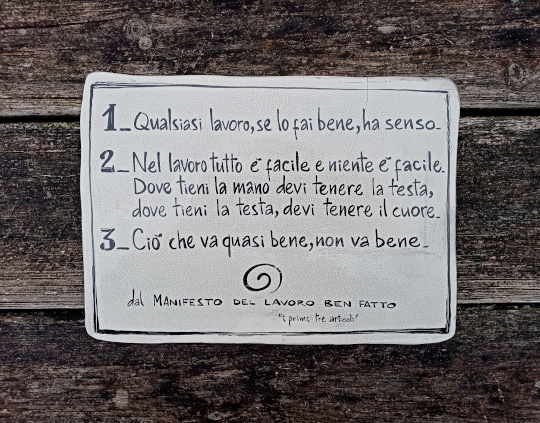 1_ Qualsiasi lavoro, se lo fai bene, ha senso_
2_ Nel lavoro tutto è facile e niente è facile.
Dove tieni la mano devi tenere la testa,
dove tieni la testa, devi tenere il cuore_
3_ Ciò che va quasi bene, non va bene_
dal MANIFESTO DEL LAVORO BEN FATTO
"i primi tre articoli"